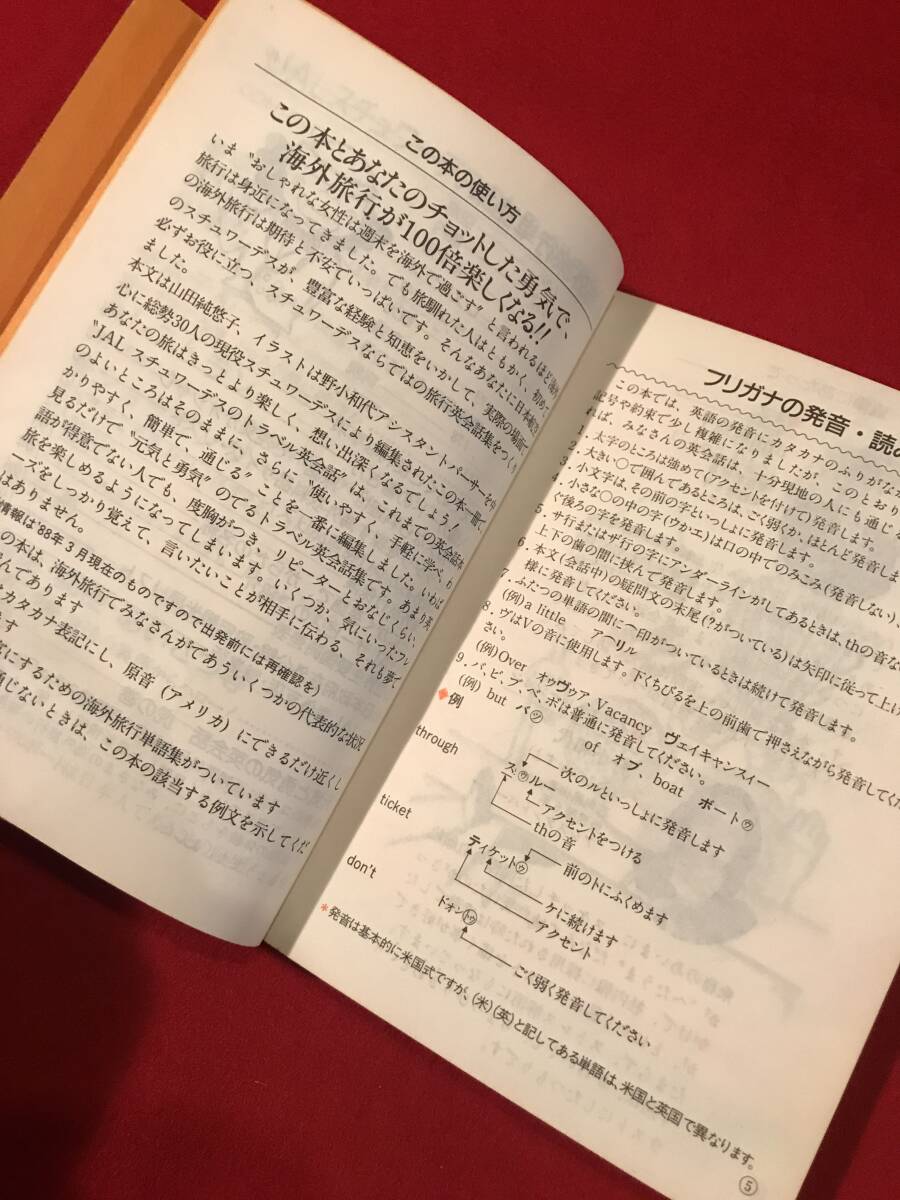 この本の使い方
この本とあなたのチョットした勇気で、
海外旅行が100倍楽しくなる!!
いま〝おしゃれな女性は週末を海外で過ごす〟と言われるほど海外
旅行は身近になってきました。でも旅馴れた人はともかく、初めて
の海外旅行は期待と不安でいっぱいです。そんなあなたに日本航空
のスチュワーデスが、豊富な経験と知恵をいかして、実際の場面で
必ずお役に立つ、スチュワーデスならではの旅行英会話集をつくり
ました。
本文は山田純悠子、イラストは野小和代アシスタントパーサーを中
心に総勢30人の現役スチュワーデスにより編集されたこの本一冊で
あなたの旅はきっとより楽しく、想い出深くなるでしょう!
〝JAL スチュワーデスのトラベル英会話〟は、これまでの英会話本
のよいところはそのままに、さらに〝使いやすく、手軽に学べ、わ
かりやすく、簡単で、通じる〟ことを一番に編集しました。いわば
見るだけで〝元気と勇気〟のでるトラベル英会話集です。あまり英
語が得意でない人でも、度胸がつき、リピーターとおなじくらい、
旅を楽しめるようになってしまいます。いくつか、気にいったフレ
ーズをしっかり覚えて、言いたいことが相手に伝わる、それも夢で
はありません。
情報は'88年3月現在のものですので出発前には再確認を)
の本は、海外旅行でみなさんがであういくつかの代表的な状況
んであります
カタカナ表記にし、原音(アメリカ)にできるだけ近くし
ます
富にするための海外旅行単語集がついています
通じないときは、この本の該当する例文を示してくだ
フリガナの発音・読み
この本では、英語の発音にカタカナのふりがなが
記号や約束で少し複雑になりましたが、このとおり
れば、みなさんの英会話は、十分現地の人にも通じ
1. 太字のところは強めて(アクセントを付けて)発音します。
2. 大きい○で囲んであるところは、ごく弱くか、ほとんど発音しま
3. 小文字は、その前の字といっしょに発音します。
4. 小さな○の中の字(ウかエ)は口の中でのみこみ(発音しない)、
ぐ後ろの字を発音します。
5. サ行またはザ行の字にアンダーラインがしてあるときは、thの音な
上下の歯の間に挟んで発音します。
6. 本文(会話中)の疑問文の末尾(?がついている)は矢印に従って上げ
様に発音してください。
7. ふたつの単語の間に⌒印がついているときは続けて発音します。
(例)a little ア⌒リル
8. ヴはVの音に使用します。下くちびるを上の前歯で押さえながら発音してくだ
さい。
(例)Over オゥヴゥア、Vacancy ヴェイキャンスィー
9. バ、ビ、ブ、ベ、ボは普通に発音してください。
(例) but バッ of オブ、boat ボートゥ
◆例
through
スゥルー
次のルといっしょに発音します
アクセントをつける
thの音
ticket
ティケットゥ
前のトにふくめます
ケに続けます
アクセント
don't
ドォントゥ
ごく弱く発音してください
*発音は基本的に米国式ですが、(米)(英)と記してある単語は、米国と英国で異なります。
⑤